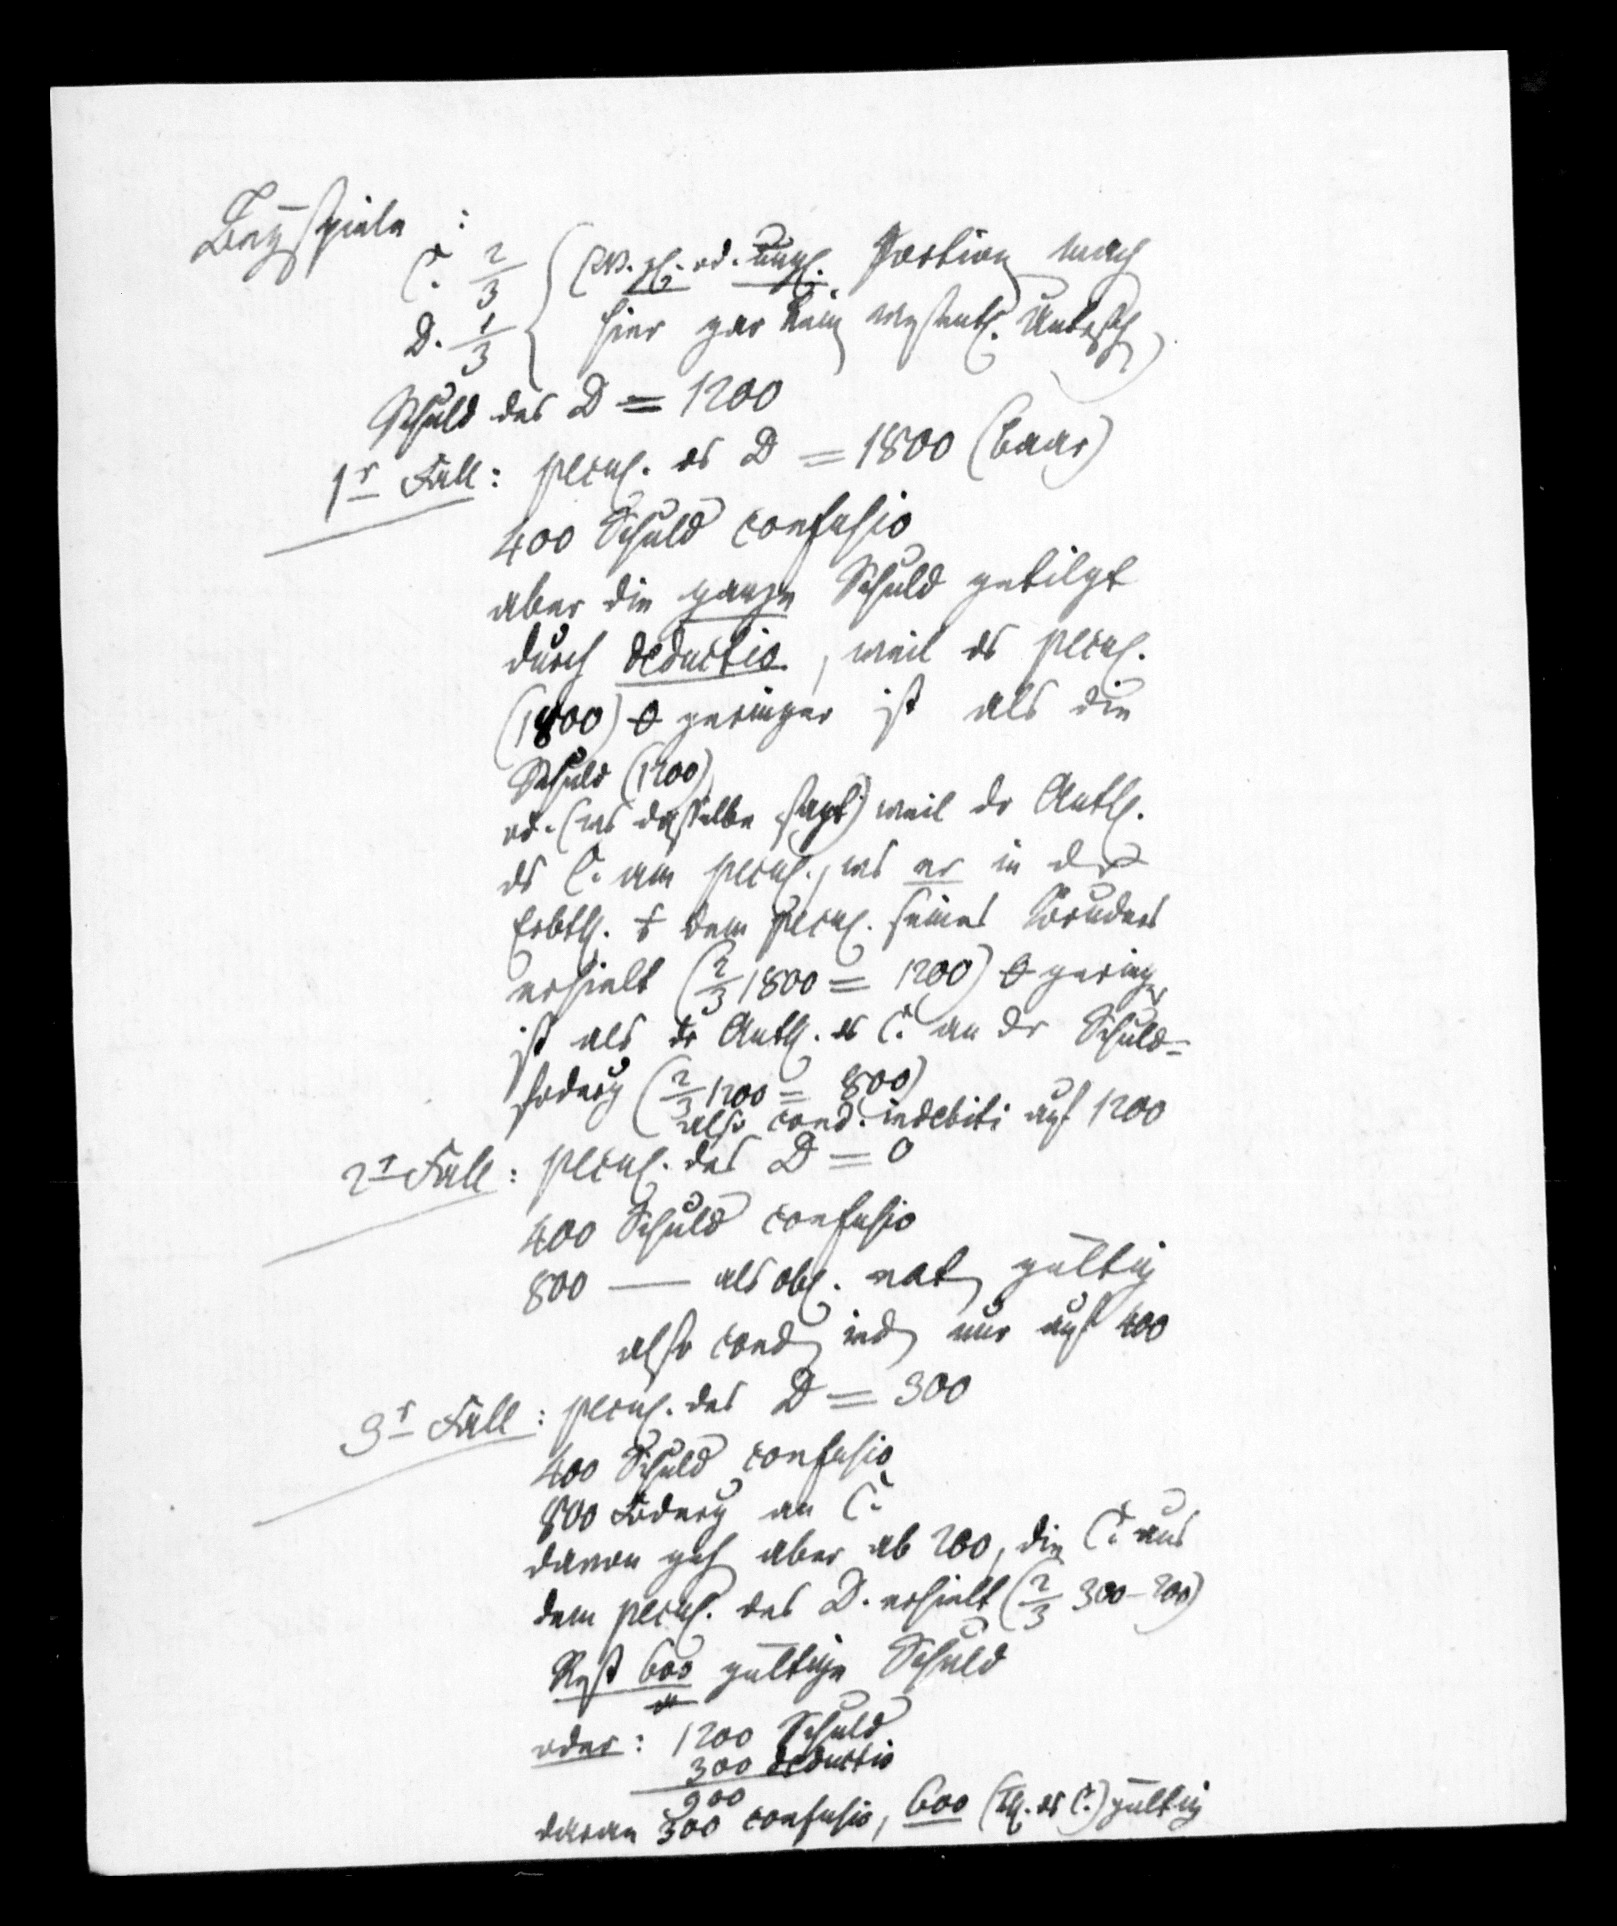 Beyspiele:
C. 2/3 { (NB. gl. od. ungl. Portion macht
D. 1/3 { hier gar kein wesentl. Untersch)
Schuld des D = 1200
1r Fall: pecul. ds D = 1800 (baar)
400 Schuld confusio
aber die ganze Schuld getilgt
durch deductio, weil ds pecul.
(1800) geringer ist als die
Schuld (1200)
od. (was dasselbe sagt) weil dr Anth.
ds C. am pecul., was er in dr
Erbth. dem pecul. seines Bruders
erhielt (2/3 1800 = 1200) geringer
ist als dr Anth. ds C. an dr Schuld-
foderg (2/3 1200 = 800)
also cond. indebiti auf 1200
2r Fall: pecul. des D = 0
400 Schuld confusio
800 — als obl. nat. gültig
also cond. ind. nur auf 400
3r Fall: pecul. des D = 300
400 Schuld confusio
800 Foderg an C.
davon geht aber ab 200, die C. aus
dem pecul. des D. erhielt (2/3 300 - 200)
Rest 600 gültige Schuld
oder: 1200 Schuld
300 deductio
900
daran 300 confusio, 600 (Th. ds C.) gültig